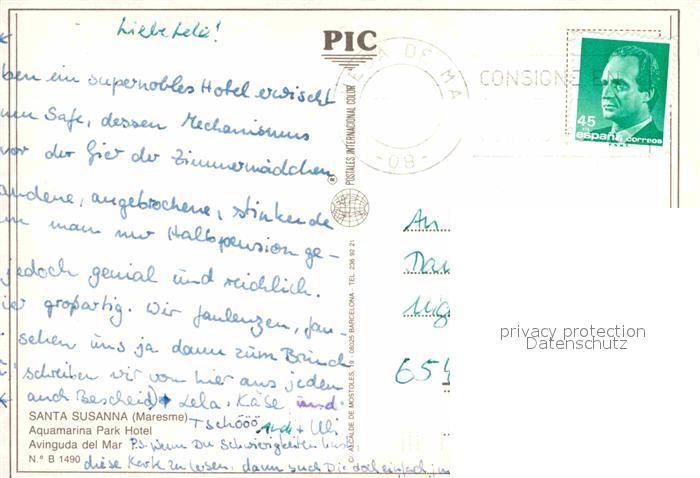 Liebe Lela!
ben ein supernobles Hotel erwischt
nen Safe, dessen Mechanismus
vor der Gier der Zimmermädchen
andene, angebrochene, stinkende
man nur Halbpension ge-
jedoch genial und reichlich.
großartig. Wir faulenzen,
sehen uns ja dann zum Brunch
schreiben wir von hier aus jeden
auch Bescheid) Lela, Käse, und
Tschööö Andi + Uli
P.S. Wenn Du Schwierigkeiten hast
diese Karte zu lesen, dann such Dir doch einfach
SANTA SUSANNA (Maresme)
Aquamarina Park Hotel
Avinguda del Mar
N.º B 1490
PIC
®
POSTALES INTERNATIONAL COLOR
C/. ALCALDE DE MOSTOLES, 19 - 08025 BARCELONA - TEL. 236 92 21
DE MA
-08-
CONSIGNE EN
45
PTS
españa correos
An
654
privacy protection
Datenschutz